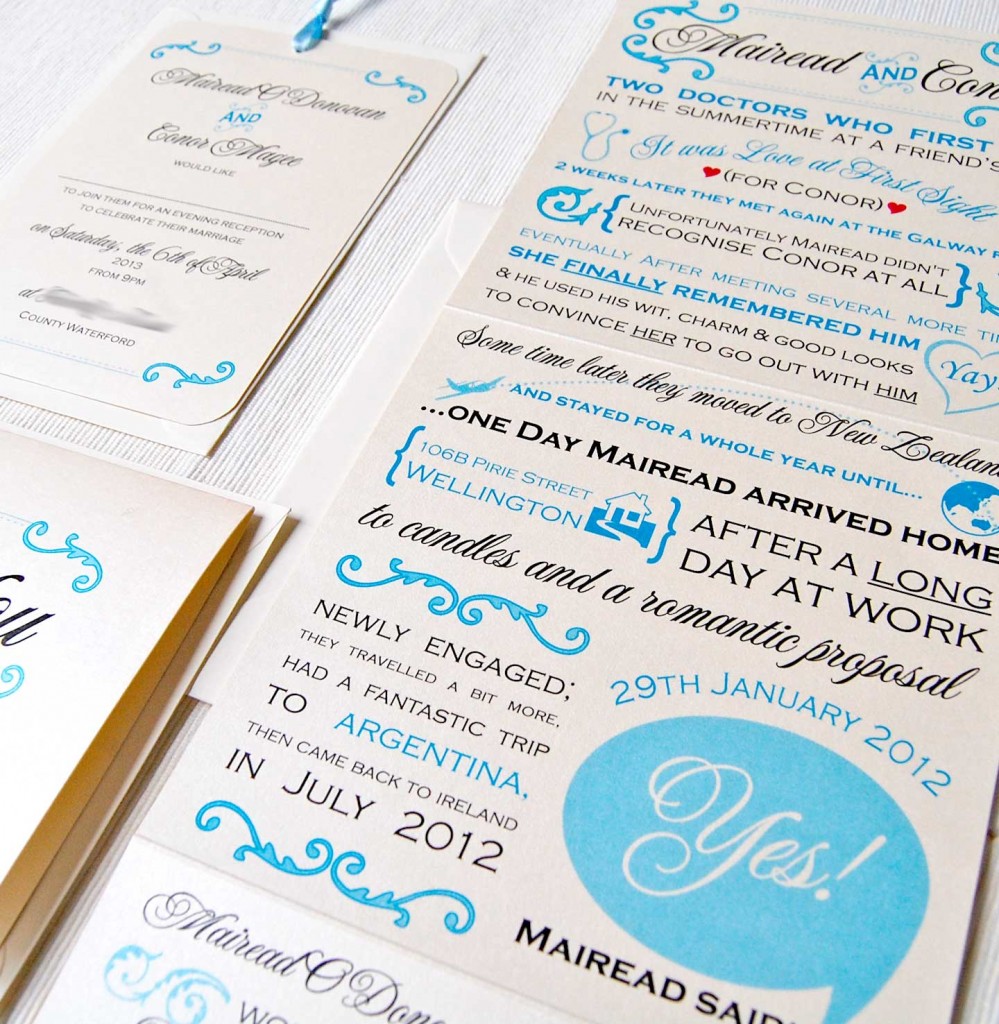 Mairead O'Donovan
AND
Conor Magee
WOULD LIKE
TO JOIN THEM FOR AN EVENING RECEPTION
TO CELEBRATE THEIR MARRIAGE
on Saturday, the 6th of April
2013
FROM 9PM
at
COUNTY WATERFORD
ou
Mairead AND Con
TWO DOCTORS WHO FIRST
IN THE SUMMERTIME AT A FRIEND'S
It was Love at First Sight
(FOR CONOR)
2 WEEKS LATER THEY MET AGAIN AT THE GALWAY
UNFORTUNATELY MAIREAD DIDN'T
RECOGNISE CONOR AT ALL
EVENTUALLY AFTER MEETING SEVERAL MORE TI
SHE FINALLY REMEMBERED HIM
& HE USED HIS WIT, CHARM & GOOD LOOKS
TO CONVINCE HER TO GO OUT WITH HIM
Yay
Some time later they moved to New Zealan
AND STAYED FOR A WHOLE YEAR UNTIL...
...ONE DAY MAIREAD ARRIVED HOME
106B PIRIE STREET
WELLINGTON
AFTER A LONG
DAY AT WORK
to candles and a romantic proposal
NEWLY ENGAGED;
THEY TRAVELLED A BIT MORE,
HAD A FANTASTIC TRIP
TO ARGENTINA,
THEN CAME BACK TO IRELAND
IN JULY 2012
29TH JANUARY 2012
Yes!
MAIREAD SAID
Mairead O'Dono
WO